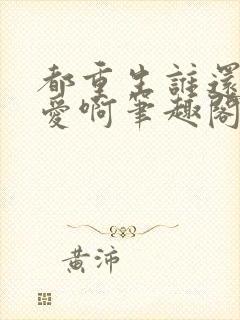 都重生誰還
愛啊筆趣閣
黃沛